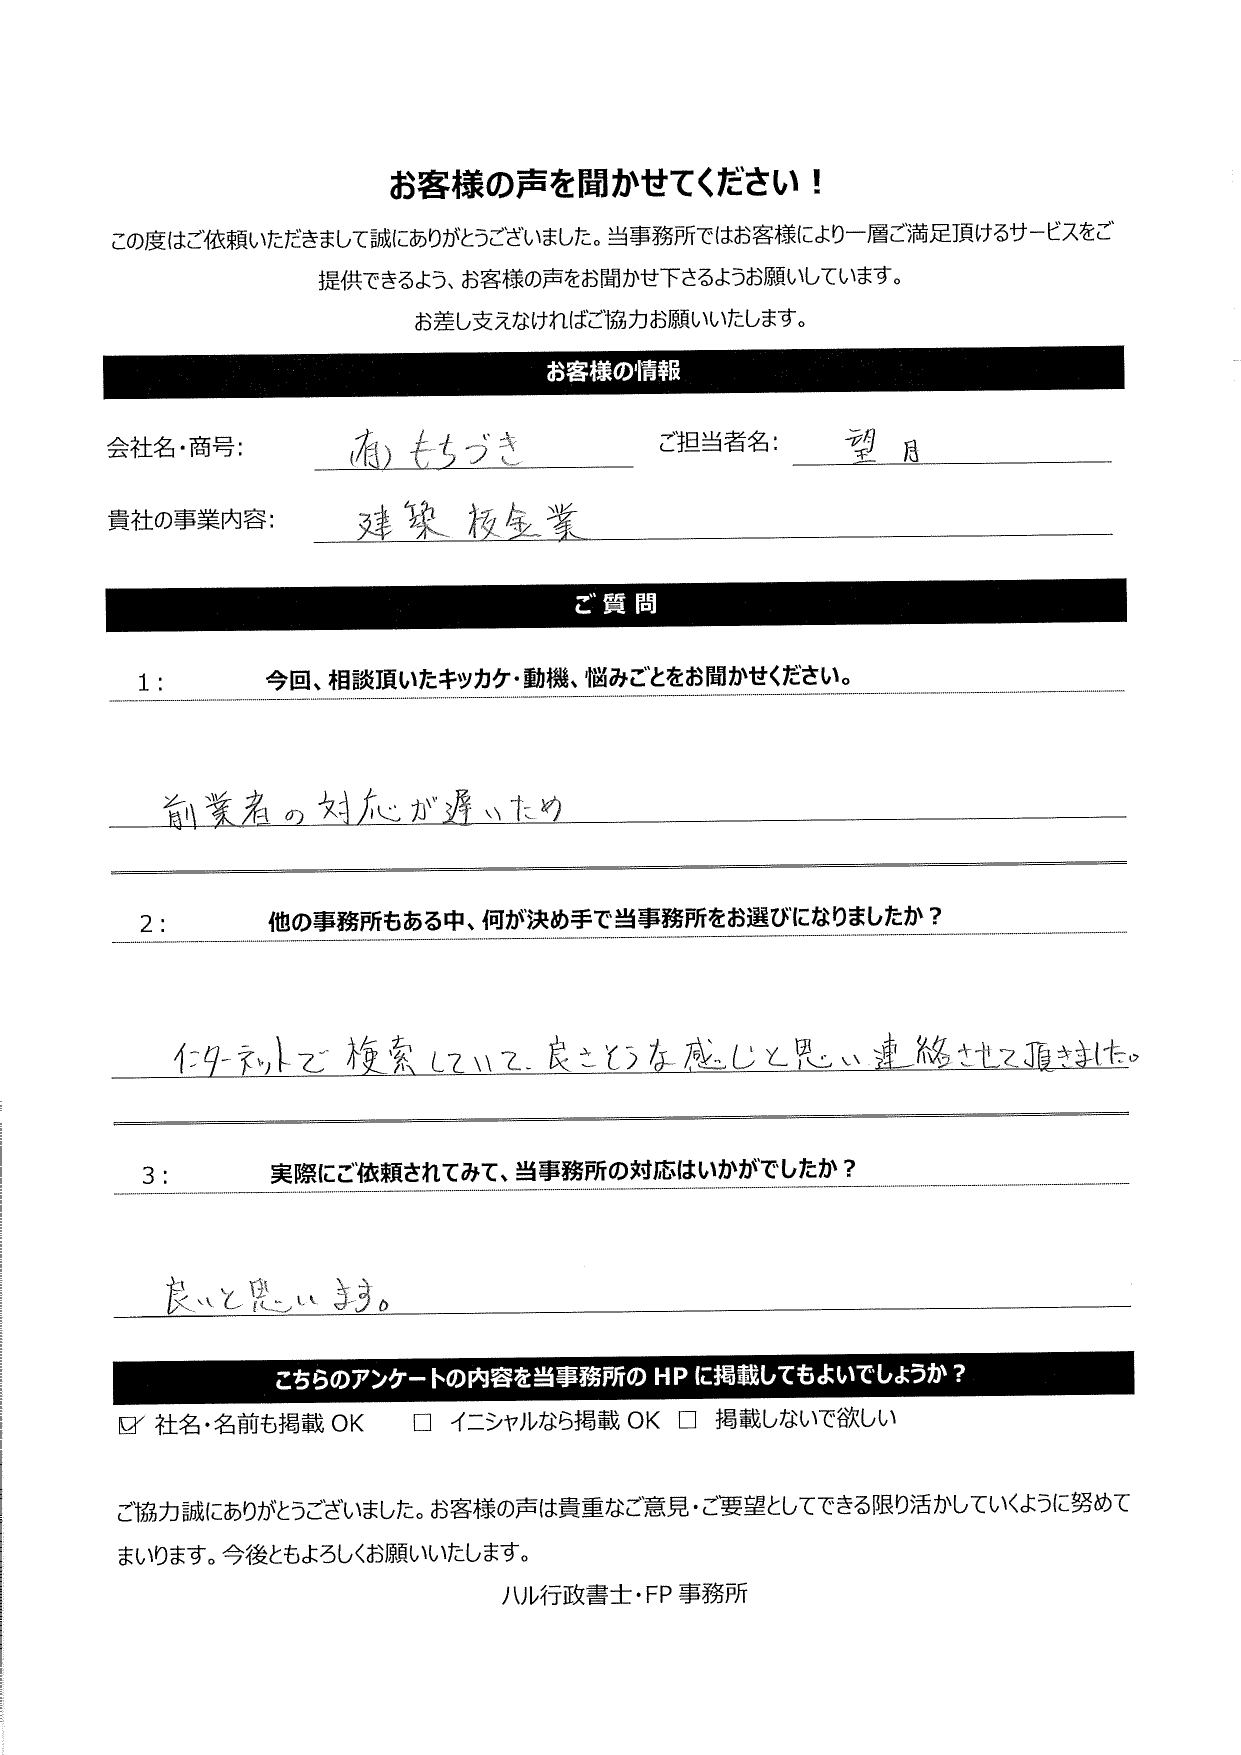 お客様の声を聞かせてください！
この度はご依頼いただきまして誠にありがとうございました。当事務所ではお客様により一層ご満足頂けるサービスをご
提供できるよう、お客様の声をお聞かせ下さるようお願いしています。
お差し支えなければご協力お願いいたします。
お客様の情報
会社名・商号： (有)もちづき ご担当者名： 望月
貴社の事業内容： 建築板金業
ご 質 問
1： 今回、相談頂いたキッカケ・動機、悩みごとをお聞かせください。
前業者の対応が遅いため
2： 他の事務所もある中、何が決め手で当事務所をお選びになりましたか？
インターネットで検索していて、良さそうな感じと思い連絡させて頂きました。
3： 実際にご依頼されてみて、当事務所の対応はいかがでしたか？
良いと思います。
こちらのアンケートの内容を当事務所の HP に掲載してもよいでしょうか？
☑ 社名・名前も掲載 OK □ イニシャルなら掲載 OK □ 掲載しないで欲しい
ご協力誠にありがとうございました。お客様の声は貴重なご意見・ご要望としてできる限り活かしていくように努めて
まいります。今後ともよろしくお願いいたします。
ハル行政書士・FP 事務所